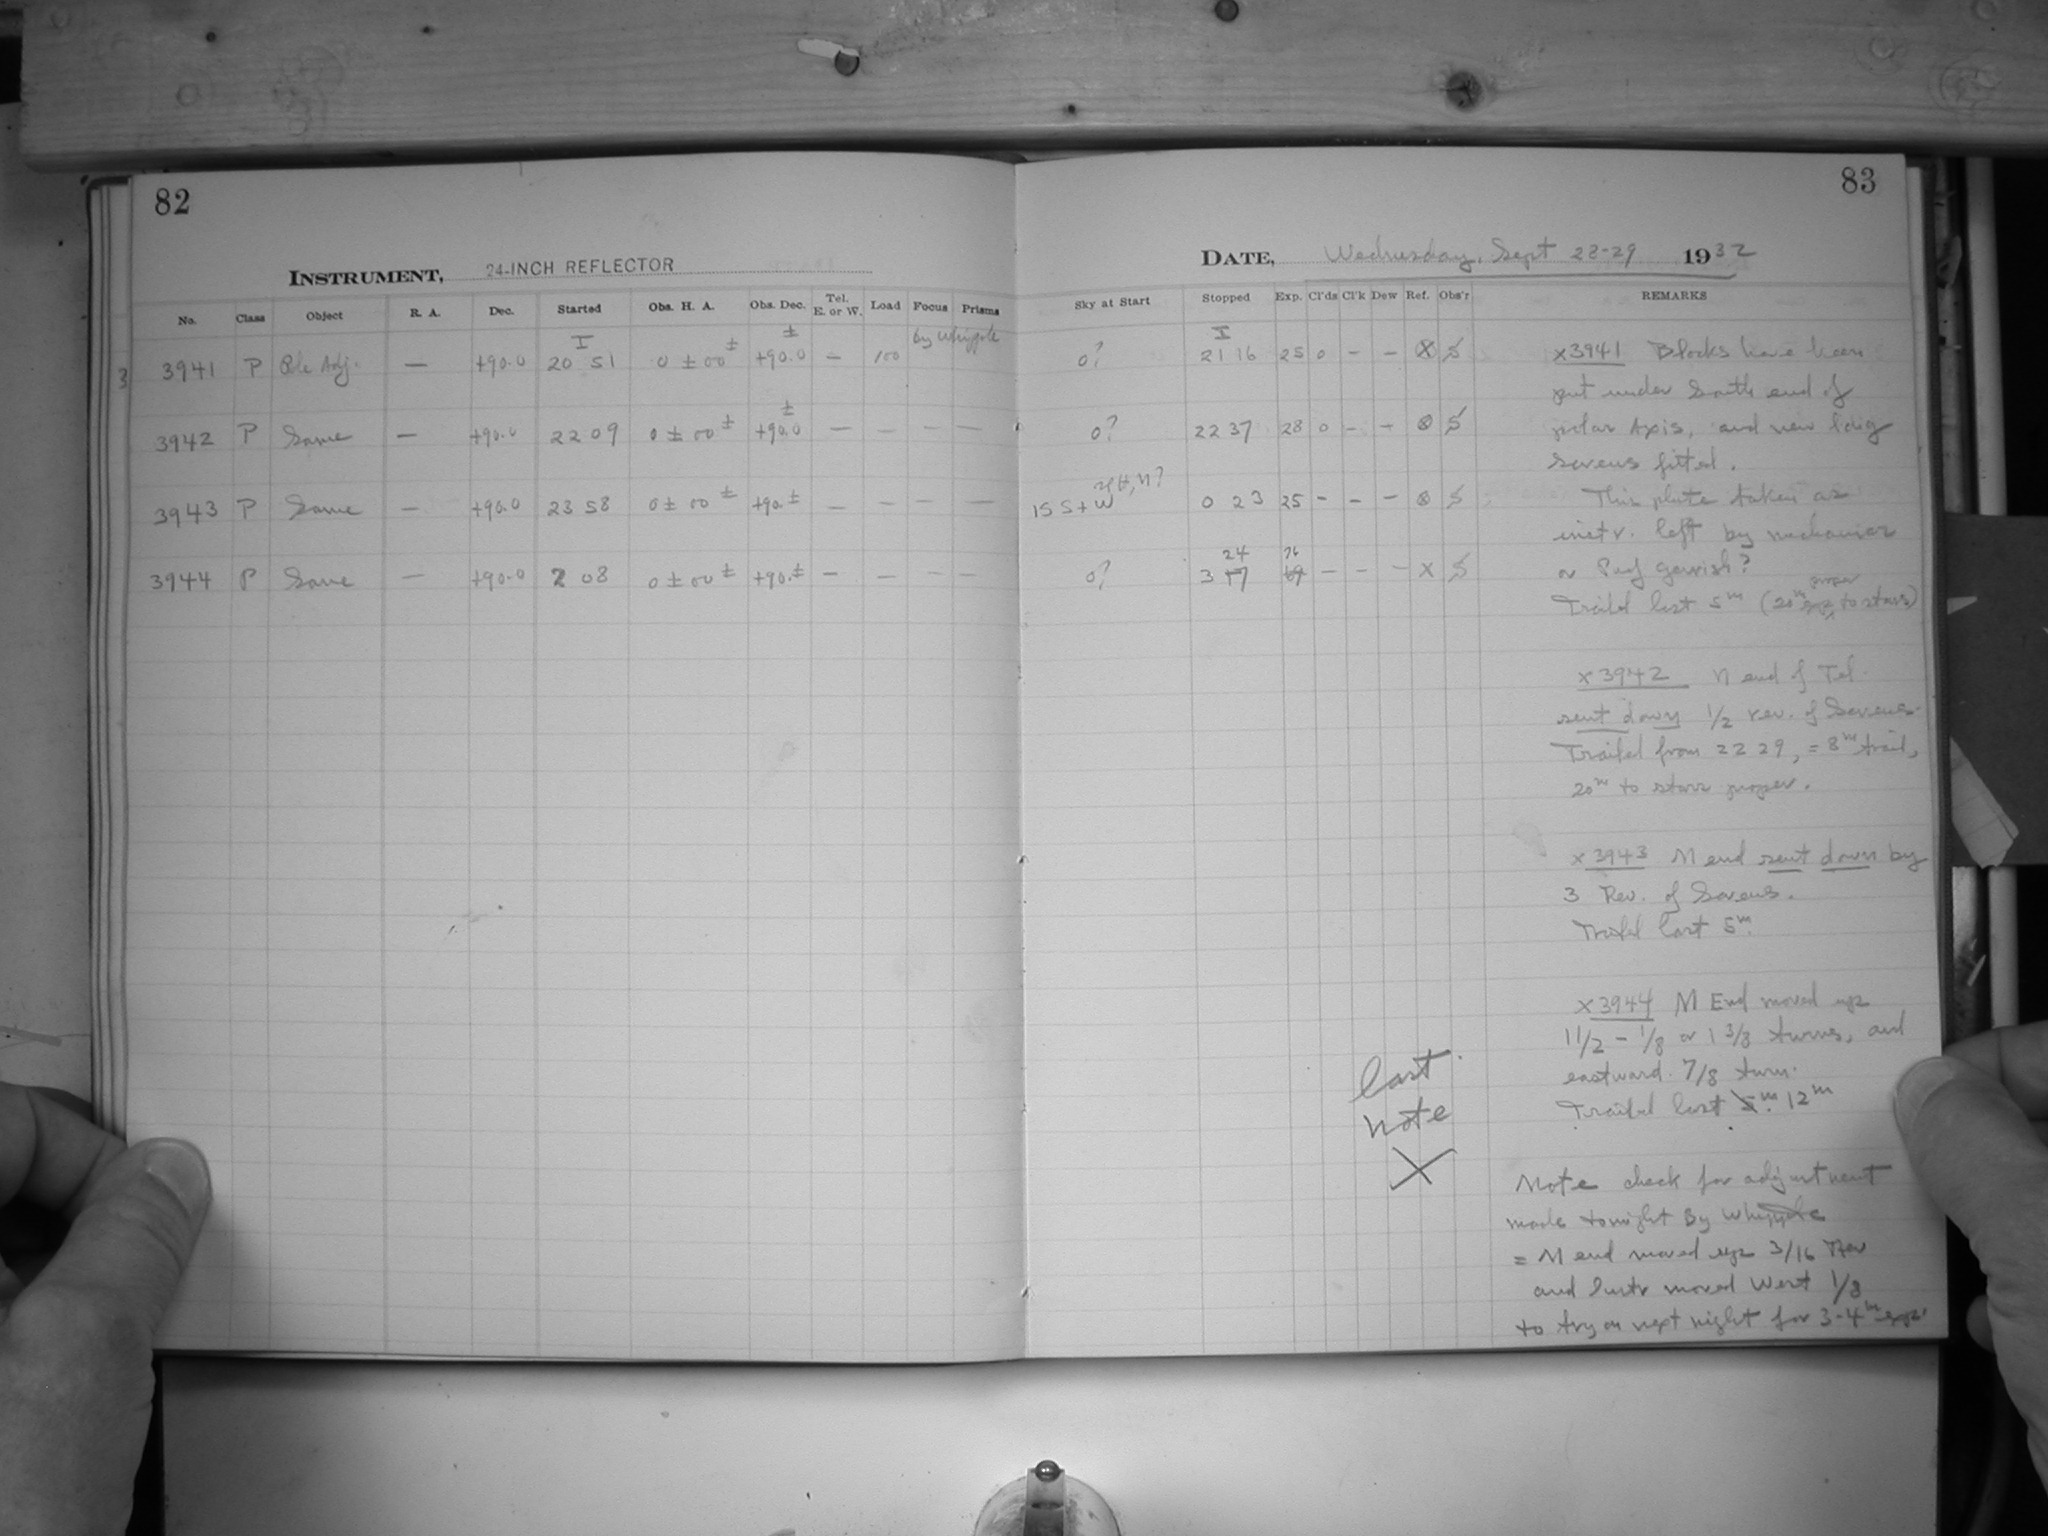 82
83
INSTRUMENT, 24-INCH REFLECTOR
DATE, Wednesday, Sept 28-29 1932
No. Class Object R. A. Dec. Started Obs. H. A. Obs. Dec. Tel. E. or W. Load Focus Prisms Sky at Start Stopped Exp. Cl'ds Cl'k Dew Ref. Obs'r REMARKS
I ± ± by Whipple I
3 3941 P Pole Adj. — +90.0 20 51 0 ± 00 +90.0 — 100 0? 21 16 25 0 — — ⊗ S
3942 P Same — +90.0 22 09 0 ± 00 ± +90.0 ± — — — — 0? 22 37 28 0 — — ⊗ S
3943 P Same — +90.0 23 58 0 ± 00 ± +90. ± — — — — 15 S + W 0 23 25 — — — ⊗ S
24 76
3944 P Same — +90.0 2 08 0 ± 00 ± +90. ± — — — — 0? 3 17 69 — — — X S
x3941 Blocks have been
put under South end of
polar Axis, and new
Screws fitted.
This plate taken as
instr. left by mechanics
or Prof Gerrish?
Trailed last 5m (20m proper to stars)
x 3942 N end of Tel.
sent down 1/2 rev. of Screws.
Trailed from 22 29, = 8m trail,
20m to stars proper.
x 3943 N end sent down by
3 Rev. of Screws.
Trailed last 5m
x 3944 N End moved up
1 1/2 - 1/8 or 1 3/8 turns, and
eastward. 7/8 turn.
Trailed last 5m. 12m
last
note
X
Note check for adjustment
made tonight By Whipple
= N end moved up 3/16 Rev
and Instr moved West 1/8
to try on next night for 3-4m exp.